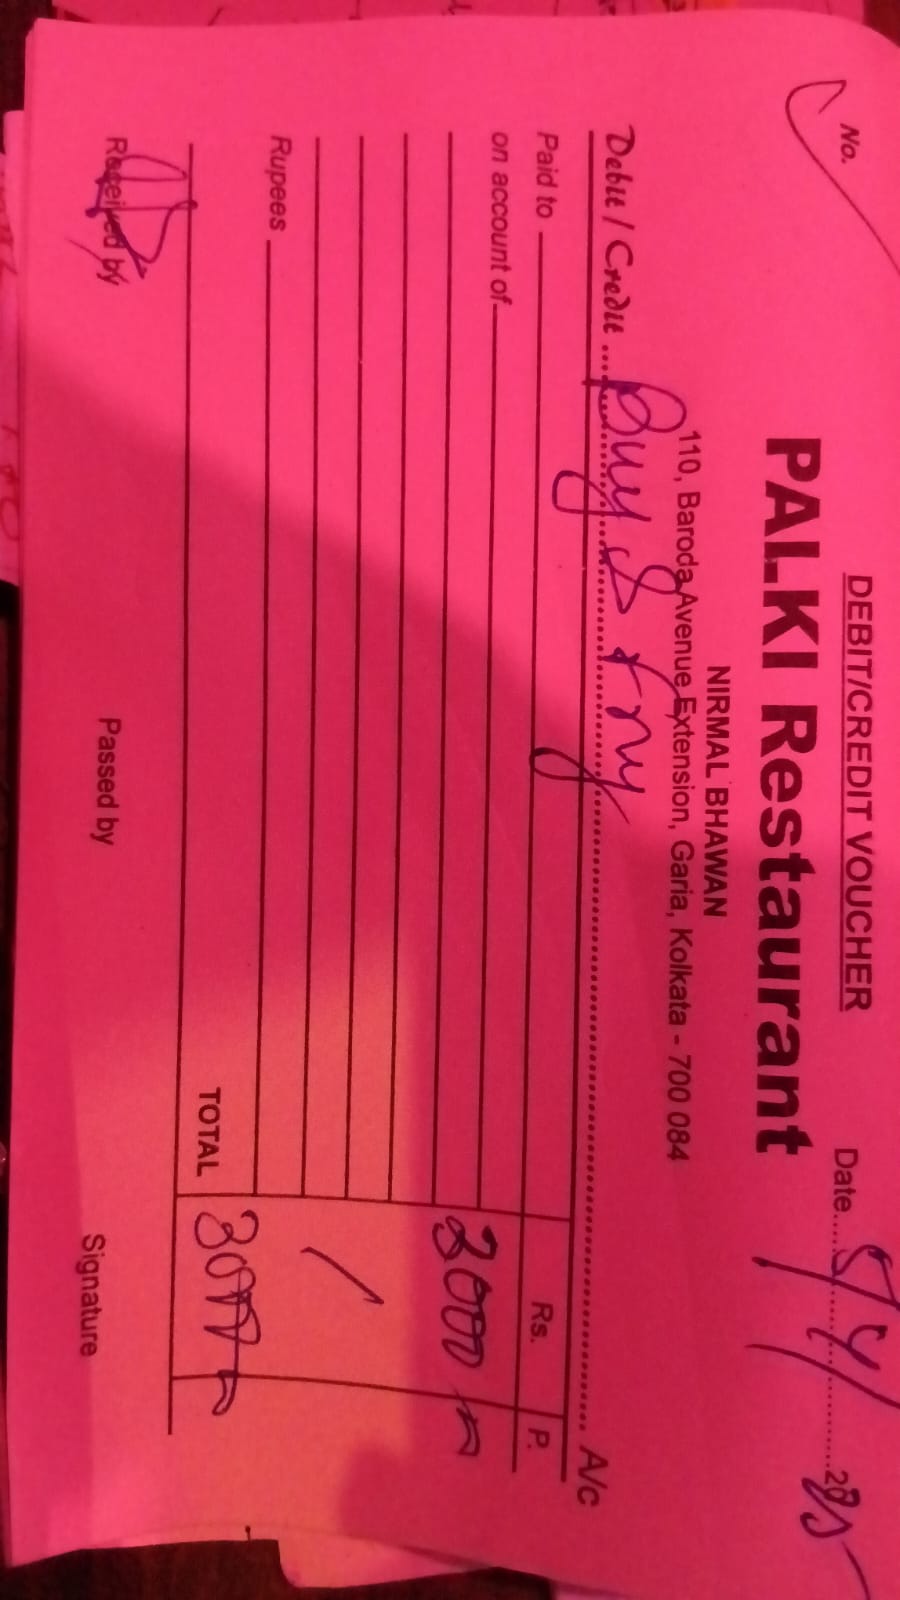 DEBIT/CREDIT VOUCHER
No.
Date 5/4/2025
PALKI Restaurant
NIRMAL BHAWAN
110, Baroda Avenue Extension, Garia, Kolkata - 700 084
Debit / Credit Buy A/c
Paid to Rs. P.
on account of
3000
Rupees
TOTAL 3000
Received by Passed by Signature